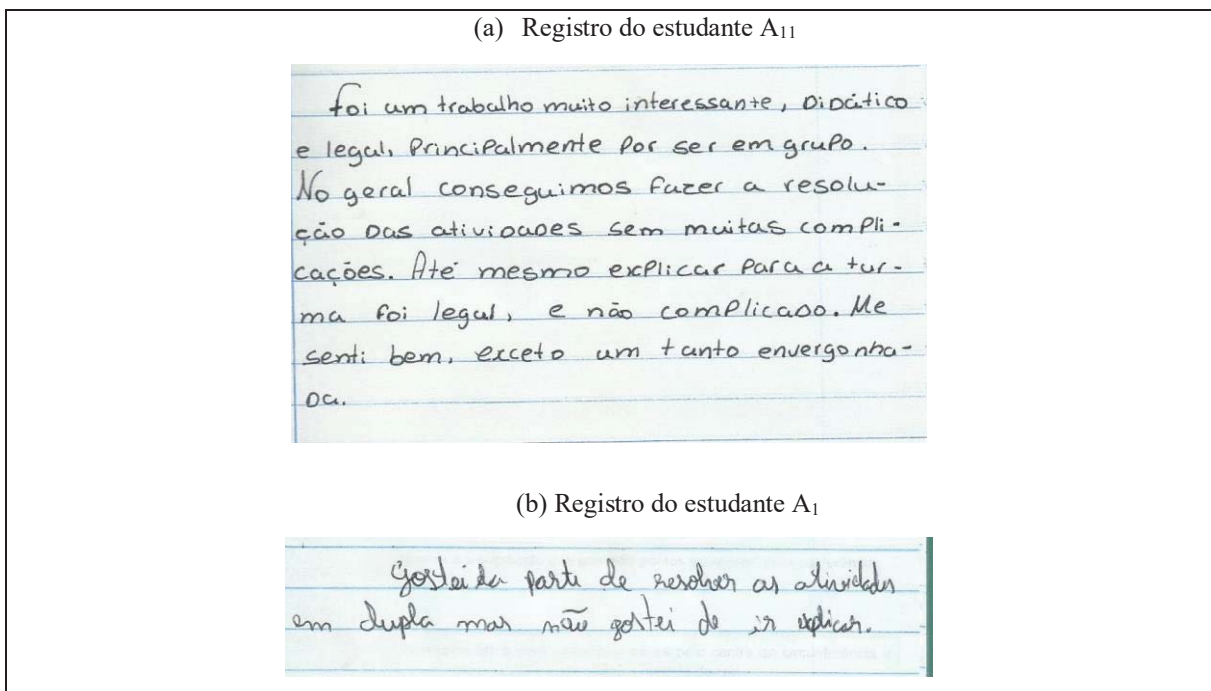 (a) Registro do estudante A11
foi um trabalho muito interessante, Didático
e legal, Principalmente Por ser em grupo.
No geral conseguimos fazer a resolu-
ção das atividades sem muitas compli-
cações. Até mesmo explicar para a tur-
ma foi legal, e não complicado. Me
senti bem, exceto um tanto envergonha-
da.
(b) Registro do estudante A1
Gostei da parte de resolver as atividades
em dupla mas não gostei de ir explicar.